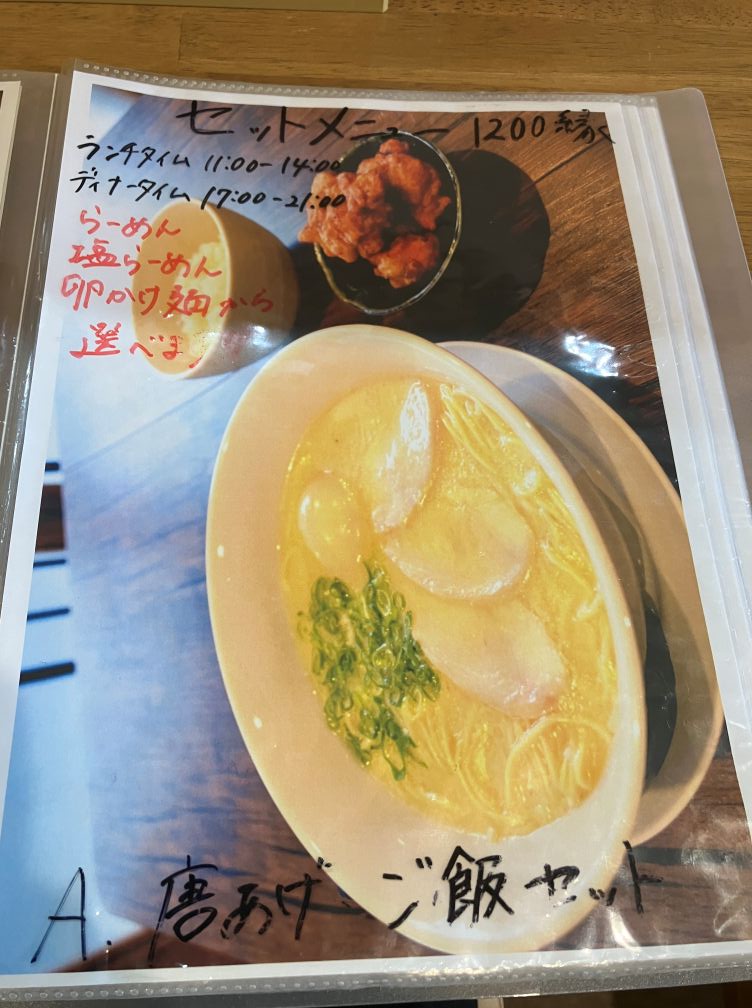 セットメニュー 1200縁
ランチタイム 11:00-14:00
ディナータイム 17:00-21:00
らーめん
塩らーめん
卵かけ麺から
選べます
A. 唐あげ ご飯セット